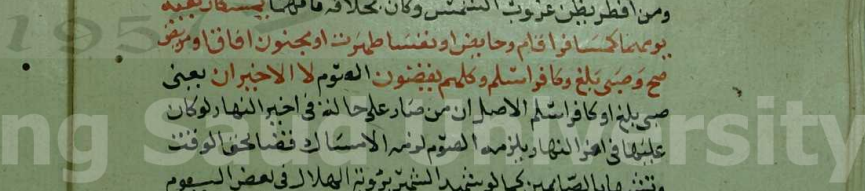 ومن افطر يظن غروب الشمس وكان بخلافه فافهما يمسكان بقية
يومهما كمسافر اقام وحايض او نفسا طهرت او مجنون افاق او مريض
صح وصبي بلغ وكافر اسلم وكلهم يقضون الصوم لا الاخيران يعني
صبي بلغ او كافر اسلم الاصل ان من صار على حالة في اخير النهار لو كان
عليها في اول النهار يلزمه الصوم لزمه الامساك قضا لحق الوقت
وتشبها بالصايمين كما لو شهد الشهر برؤية الهلال في بعض اليوم
ng Saud University
1957